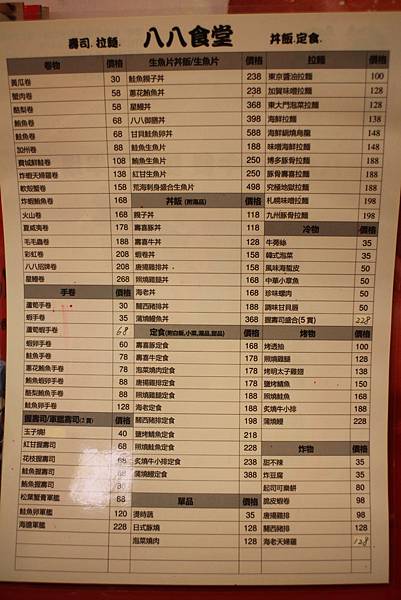 壽司.拉麵. 八八食堂 丼飯.定食.
卷物 價格
黃瓜卷 30
蟹肉卷 58
酪梨卷 58
鮪魚卷 68
鮭魚卷 68
加州卷 88
費城鮮鮭卷 108
炸蝦天婦羅卷 138
軟殼蟹卷 158
炸蝦鮪魚卷 168
火山卷 168
夏威夷卷 178
毛毛蟲卷 188
彩虹卷 208
八八招牌卷 208
星鰻卷 268
手卷 價格
蘆筍手卷 30
蝦手卷 35
蘆筍蝦手卷 68
蝦卵手卷 60
鮭魚手卷 78
蔥花鮪魚手卷 78
鮪魚蝦卵手卷 88
酪梨鮪魚手卷 88
鮭魚卵手卷 128
握壽司/軍艦壽司(2貫) 價格
玉子燒 40
紅甘握壽司 68
花枝握壽司 68
鮭魚握壽司 80
鮪魚握壽司 80
松葉蟹膏軍艦 88
鮭魚卵軍艦 120
海膽軍艦 228
生魚片丼飯/生魚片 價格
鮭魚親子丼 238
蔥花鮪魚丼 238
星鰻丼 368
八八御膳丼 398
甘貝鮭魚卵丼 588
鮭魚生魚片 188
鮪魚生魚片 250
紅甘生魚片 250
荒海刺身盛合生魚片 498
丼飯 (附湯品) 價格
親子丼 118
壽喜豚丼 118
壽喜牛丼 128
蝦卷丼 158
唐揚雞排丼 168
照燒雞腿丼 168
海老丼 168
關西豬排丼 168
蒲燒鰻魚丼 368
定食 (附白飯,小菜,湯品,甜品) 價格
壽喜豚定食 168
壽喜牛定食 178
泡菜燒肉定食 178
唐揚雞排定食 188
照燒雞腿定食 188
海老定食 188
關西豬排定食 198
鹽烤鯖魚定食 218
照燒鮭魚定食 228
炙燒牛小排定食 238
蒲燒鰻定食 388
單品 價格
燙時蔬 35
日式豚燒 128
泡菜燒肉 128
拉麵 價格
東京醬油拉麵 100
加賀味噌拉麵 128
東大門泡菜拉麵 128
海鮮拉麵 138
海鮮鍋燒烏龍 148
味噌海鮮拉麵 148
博多豚骨拉麵 188
豚骨壽喜拉麵 188
究極地獄拉麵 188
札幌味噌拉麵 198
九州豚骨拉麵 198
冷物 價格
牛蒡絲 35
韓式泡菜 35
風味海蜇皮 50
中華小章魚 50
珍味螺肉 50
調味甘貝唇 50
握壽司盛合(5貫) 228
烤物 價格
烤透抽 100
照燒雞腿 128
烤明太子雞翅 138
鹽烤鯖魚 150
照燒鮭魚 168
炙燒牛小排 188
蒲燒鰻 328
炸物 價格
甜不辣 35
炸豆腐 35
起司可樂餅 80
脆皮蝦卷 98
唐揚雞排 98
關西豬排 128
海老天婦羅 128